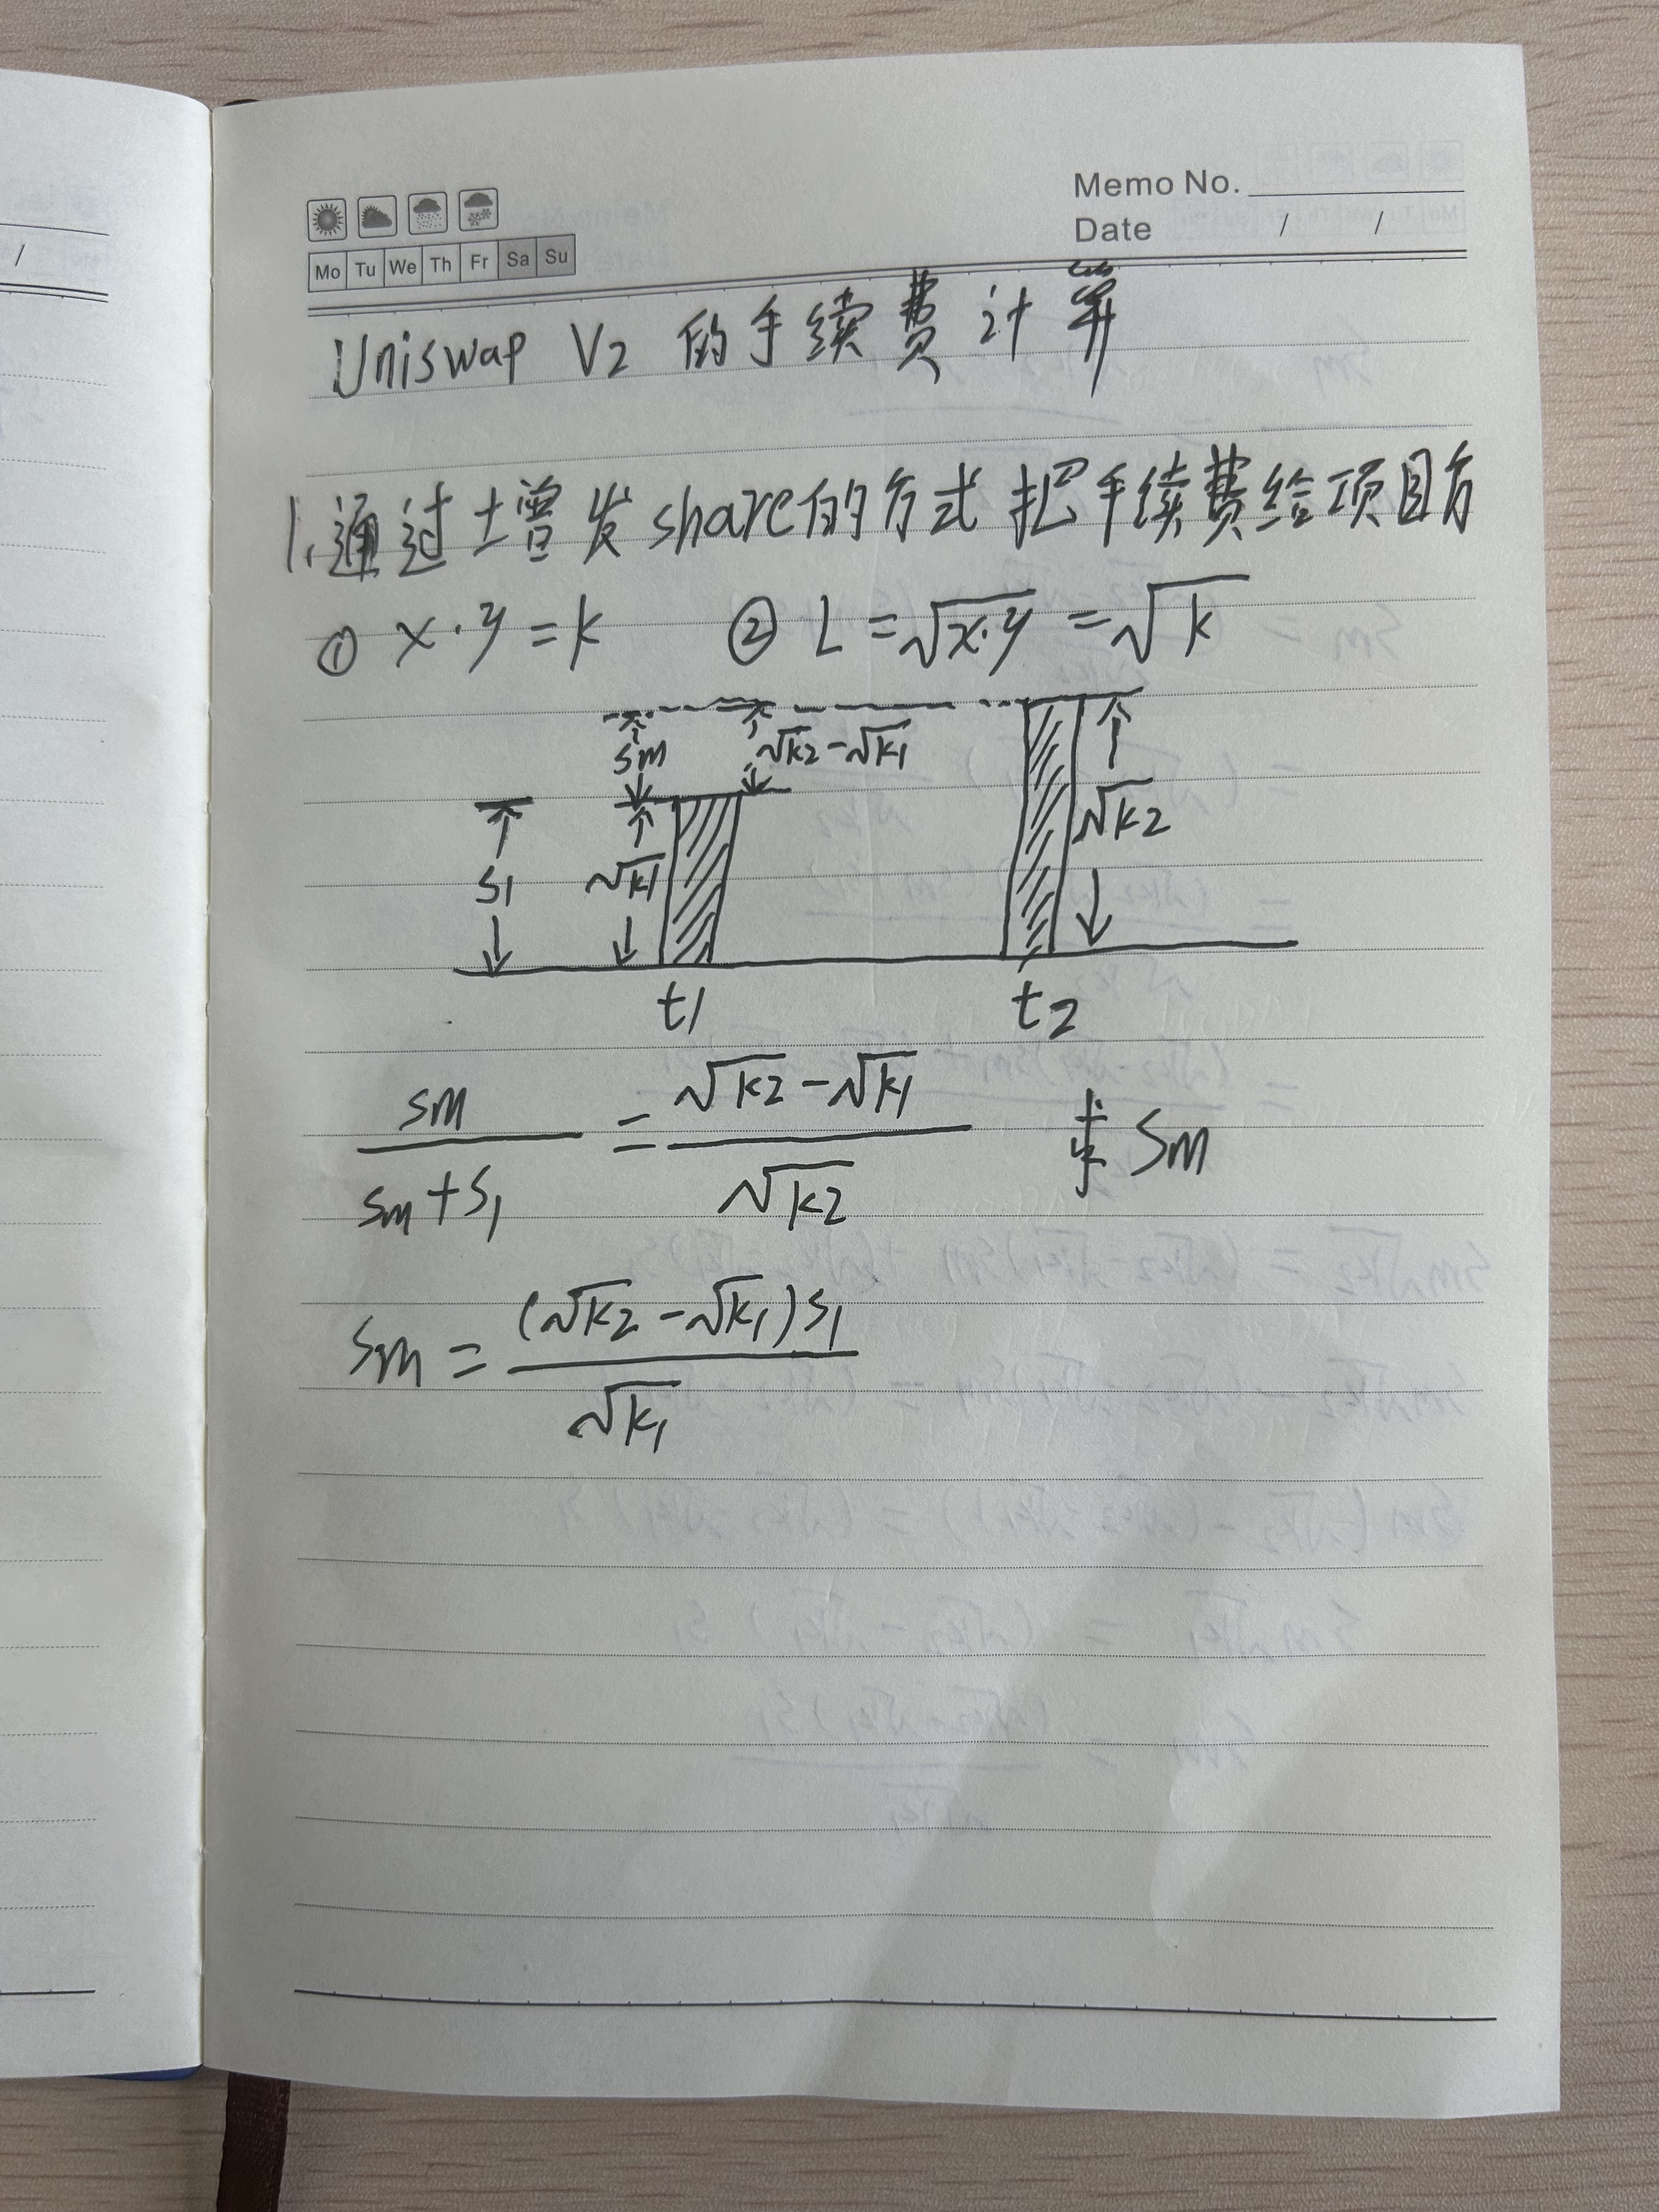 Memo No.
Mo Tu We Th Fr Sa Su
Date / /
Uniswap V2 的手续费计算
1.通过增发share的方式把手续费给项目方
① x·y=k ② L=√(x·y)=√k
sm √k2-√k1
s1 √k1 √k2
t1 t2
sm/(sm+s1) = (√k2-√k1)/√k2 求 Sm
Sm = (√k2-√k1)s1/√k1